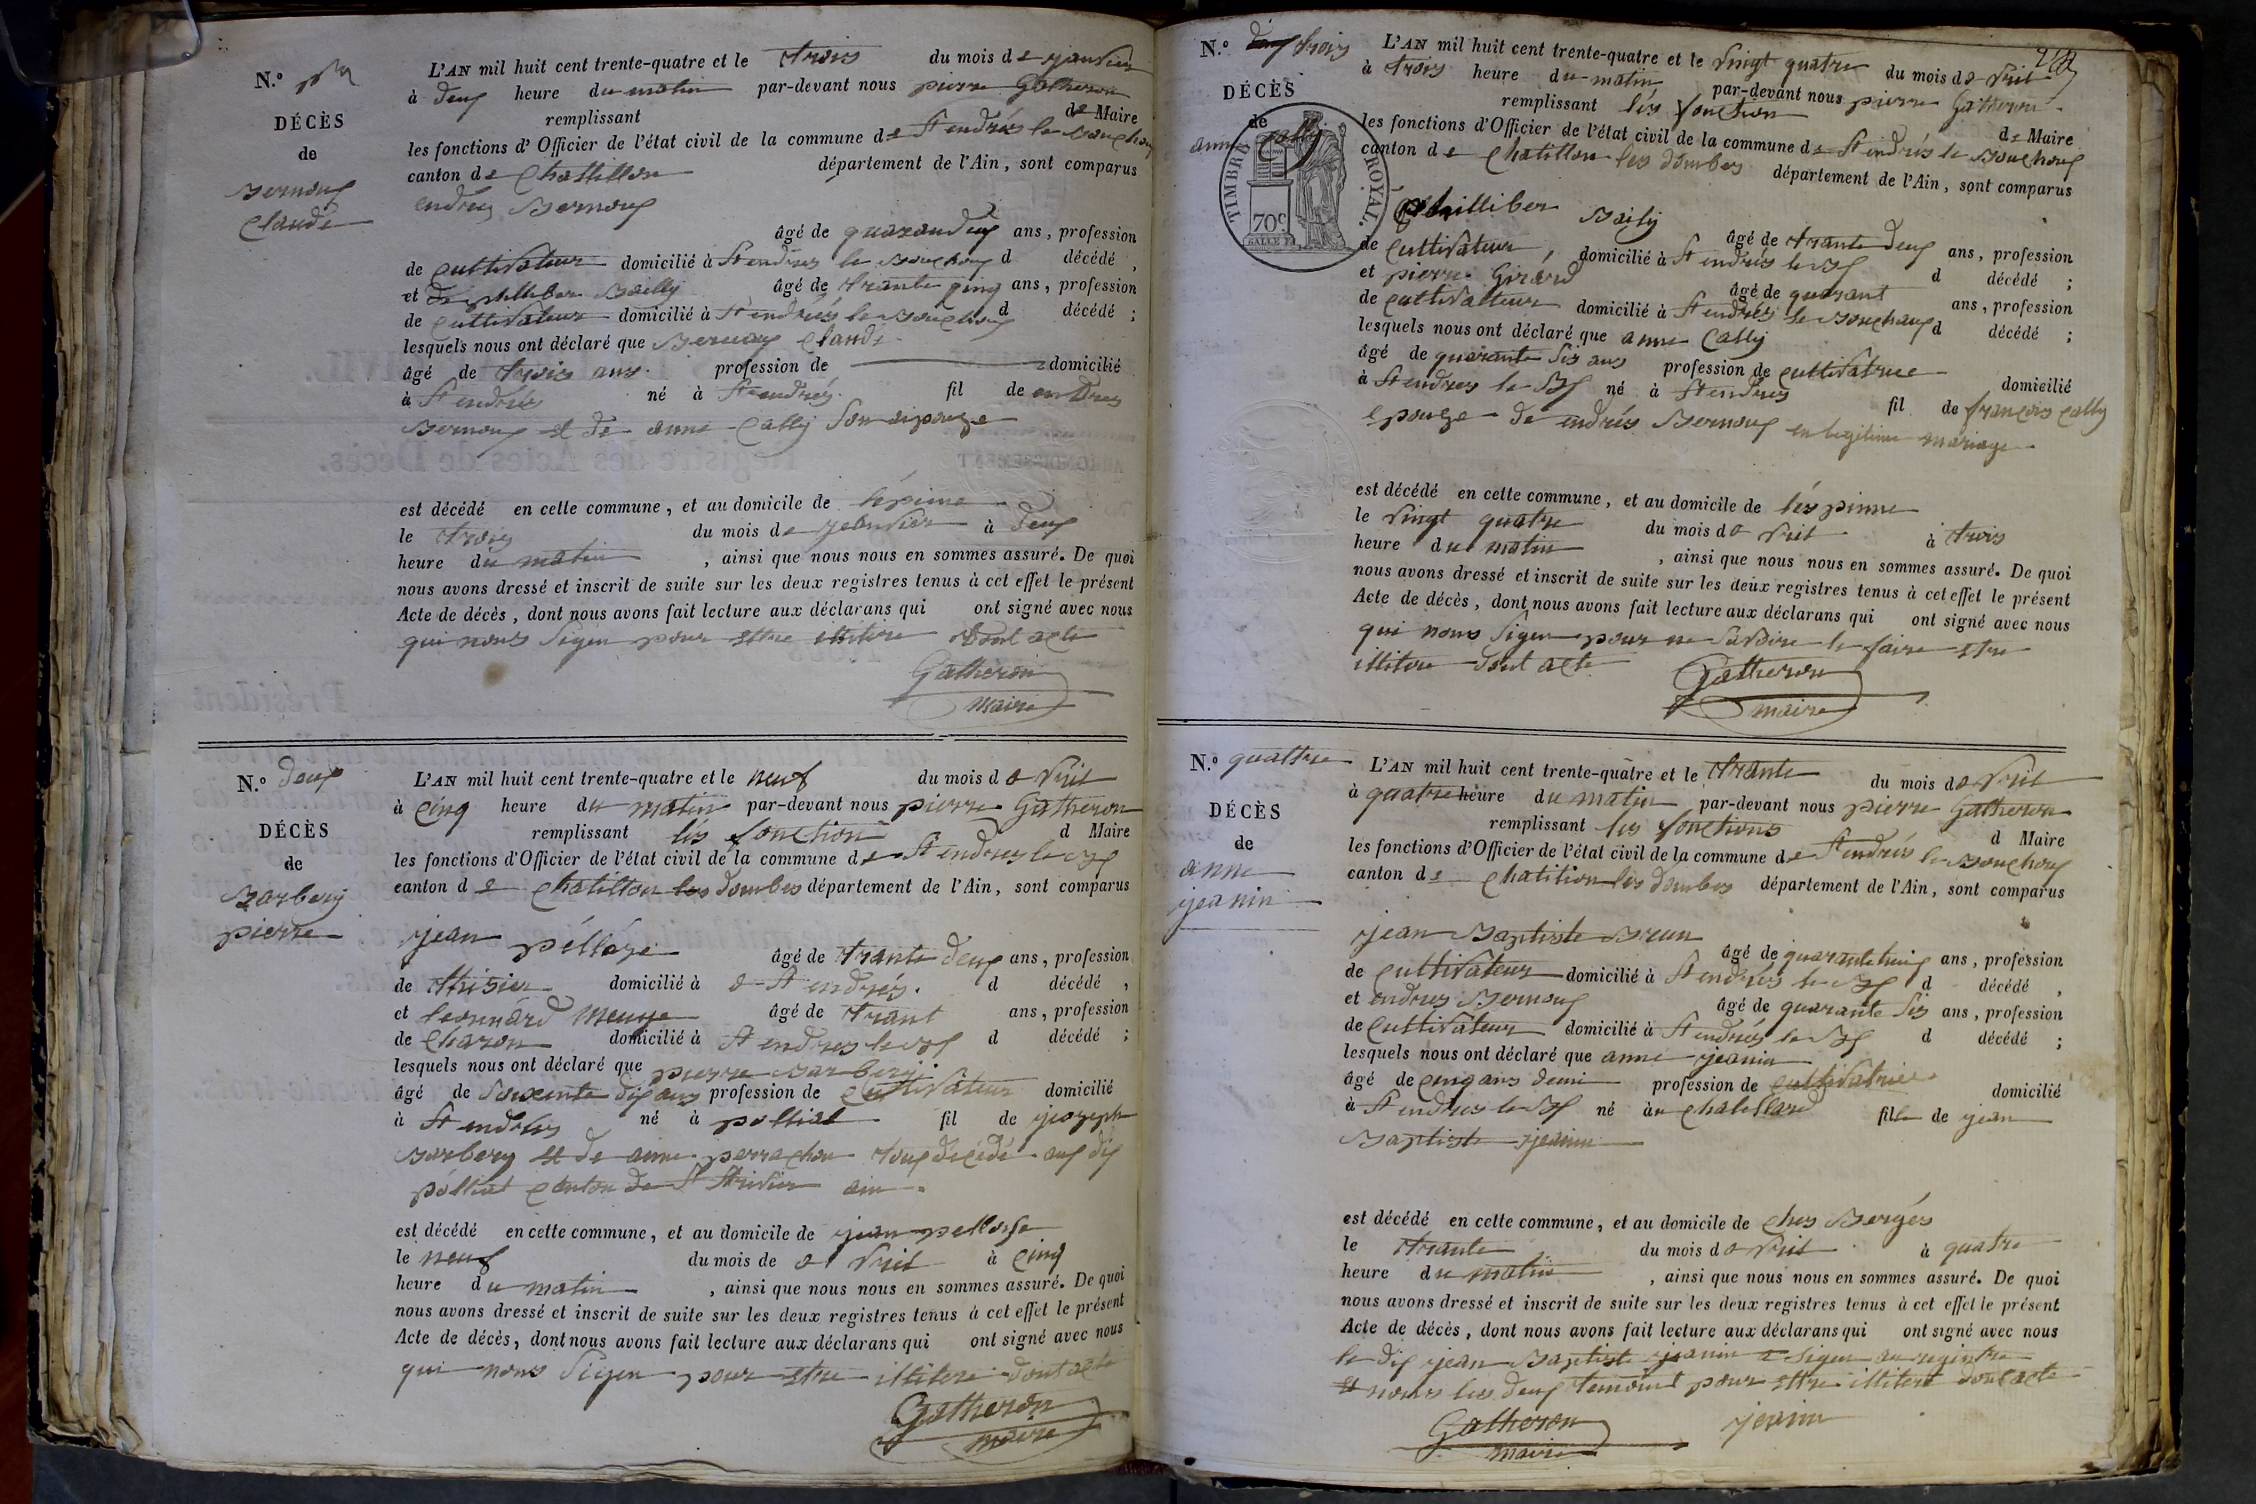 N.º 1er
DÉCÈS
de
Bernoux
Claude
L'AN mil huit cent trente-quatre et le trois du mois de janvier
à deux heure du matin par-devant nous pierre Gatheron
remplissant de Maire
les fonctions d'Officier de l'état civil de la commune de St endrés le Bouchoux
canton de Chattillon département de l'Ain, sont comparus
endrés Bernoux
âgé de quarandeux ans, profession
de cultivateur domicilié à St endrés le Bouchoux d décédé,
et de philliber Bailly âgé de trante cinq ans, profession
de cultivateur domicilié à St endrés le Bouchoux d décédé;
lesquels nous ont déclaré que Bernoux Claude
âgé de trois ans profession de domicilié
à St endrés né à St endrés fil de endres
Bernoux et de anne Cally son épouze
est décédé en cette commune, et au domicile de lépinne
le trois du mois de jeanvier à deux
heure du matin, ainsi que nous nous en sommes assuré. De quoi
nous avons dressé et inscrit de suite sur les deux registres tenus à cet effet le présent
Acte de décès, dont nous avons fait lecture aux déclarans qui ont signé avec nous
qui nons signer pour ettre illitere dont acte
Gatheron
maire
N.º deux
DÉCÈS
de
Barbery
pierre
L'AN mil huit cent trente-quatre et le neuf du mois d avril
à cinq heure du matin par-devant nous pierre Gatheron
remplissant lés fonction d Maire
les fonctions d'Officier de l'état civil de la commune de St endres le Bx
canton de Chatillon les dombes département de l'Ain, sont comparus
jean pélloze
âgé de trante deux ans, profession
de domicilié à a St endrés d décédé,
et leonnard âgé de trant ans, profession
de charon domicilié à St endres le Bx d décédé;
lesquels nous ont déclaré que pierre Barbery
âgé de soixente dix ans profession de cultivateur domicilié
à St endrés né à polliat fil de jiozeph
Barbery et de anne perrachon tous décédé aux dis
polliat canton de St trivier ain
est décédé en cette commune, et au domicile de jean pelloze
le neuf du mois de avril à cinq
heure du matin, ainsi que nous nous en sommes assuré. De quoi
nous avons dressé et inscrit de suite sur les deux registres tenus à cet effet le présent
Acte de décès, dont nous avons fait lecture aux déclarans qui ont signé avec nous
qui nons signer pour ettre illitere dont acte
Gatheron
maire
N.º deux trois
DÉCÈS
de
anne Cally
TIMBRE ROYAL.
70c.
L'AN mil huit cent trente-quatre et le vingt quatre du mois d avril
à trois heure du matin par-devant nous pierre Gatheron
remplissant lés fonction de Maire
les fonctions d'Officier de l'état civil de la commune de St endrés le Bouchoux
canton de Chatillon les dombes département de l'Ain, sont comparus
philliber Baily
âgé de trante deux ans, profession
de cultivateur, domicilié à St endrés le Bx d décédé;
et pierre Girard âgé de quarant ans, profession
de cultivatteur domicilié à St endrés le Bouchoux d décédé;
lesquels nous ont déclaré que anne Cally
âgé de quarante sis ans profession de cultivatrice domicilié
à St endres le Bx né à St endrés fil de françois Cally
epouze de endrés Bernoux en legitime mariage
est décédé en cette commune, et au domicile de léspinne
le vingt quatre du mois d avril à trois
heure du matin, ainsi que nous nous en sommes assuré. De quoi
nous avons dressé et inscrit de suite sur les deux registres tenus à cet effet le présent
Acte de décès, dont nous avons fait lecture aux déclarans qui ont signé avec nous
qui nons signer pour ne savoire le faire etre
illitere dont acte
Gatheron
maire
N.º quattre
DÉCÈS
de
anne
jeanin
L'AN mil huit cent trente-quatre et le trante du mois d avril
à quatre heure du matin par-devant nous pierre Gatheron
remplissant les fonctions d Maire
les fonctions d'Officier de l'état civil de la commune de St endrés le Bouchoux
canton de Chatillion les dombes département de l'Ain, sont comparus
jean Baptiste Brun
âgé de quarante huis ans, profession
de cultivateur domicilié à St endrés le Bx d décédé,
et endres Bernoux âgé de quarante sis ans, profession
de cultivateur domicilié à St endrés le Bx d décédé;
lesquels nous ont déclaré que anne jeanin
âgé de cinq ans demi profession de cultivatrice domicilié
à St endres le Bx né au chatellard fille de jean
Baptiste jeanin
est décédé en cette commune, et au domicile de ches Bergés
le trante du mois d avril à quatre
heure du matin, ainsi que nous nous en sommes assuré. De quoi
nous avons dressé et inscrit de suite sur les deux registres tenus à cet effet le présent
Acte de décès, dont nous avons fait lecture aux déclarans qui ont signé avec nous
le dis jean Baptiste jeanin a signer au registre
et nons les deux temoint pour ettre illitere dont acte
Gatheron jeanin
maire